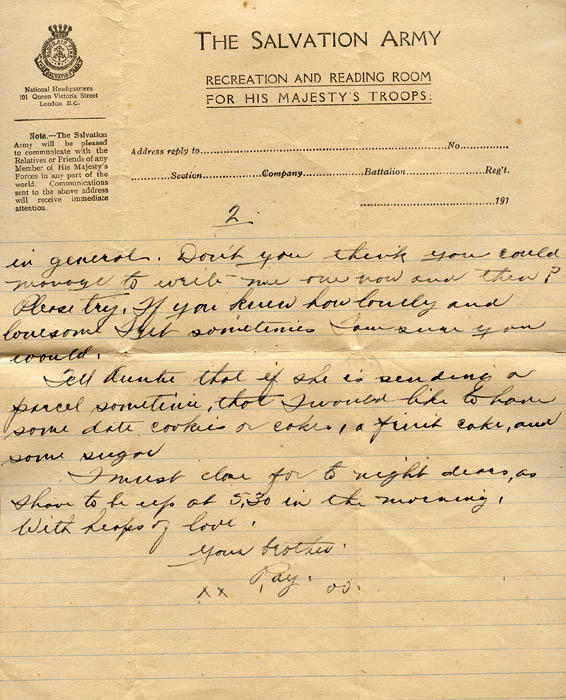 THE SALVATION ARMY
RECREATION AND READING ROOM
FOR HIS MAJESTY'S TROOPS:
National Headquarters
101 Queen Victoria Street
London E.C.
Note.—The Salvation
Army will be pleased
to communicate with the
Relatives or Friends of any
Member of His Majesty's
Forces in any part of the
world. Communications
sent to the above address
will receive immediate
attention.
Address reply to.................No.............
............Section............Company............Battalion............Reg't.
............191
2.
in general. Don't you think you could
manage to write me one now and then?
Please try. If you knew how lonely and
lonesome I get sometimes I am sure you
would.
Tell Auntie that if she is sending a
parcel sometime, that I would like to have
some date cookies or cakes, a fruit cake, and
some sugar
I must close for to night dears, as
I have to be up at 5.30 in the morning.
With heaps of love.
Your brother.
Ray.
xx oo.